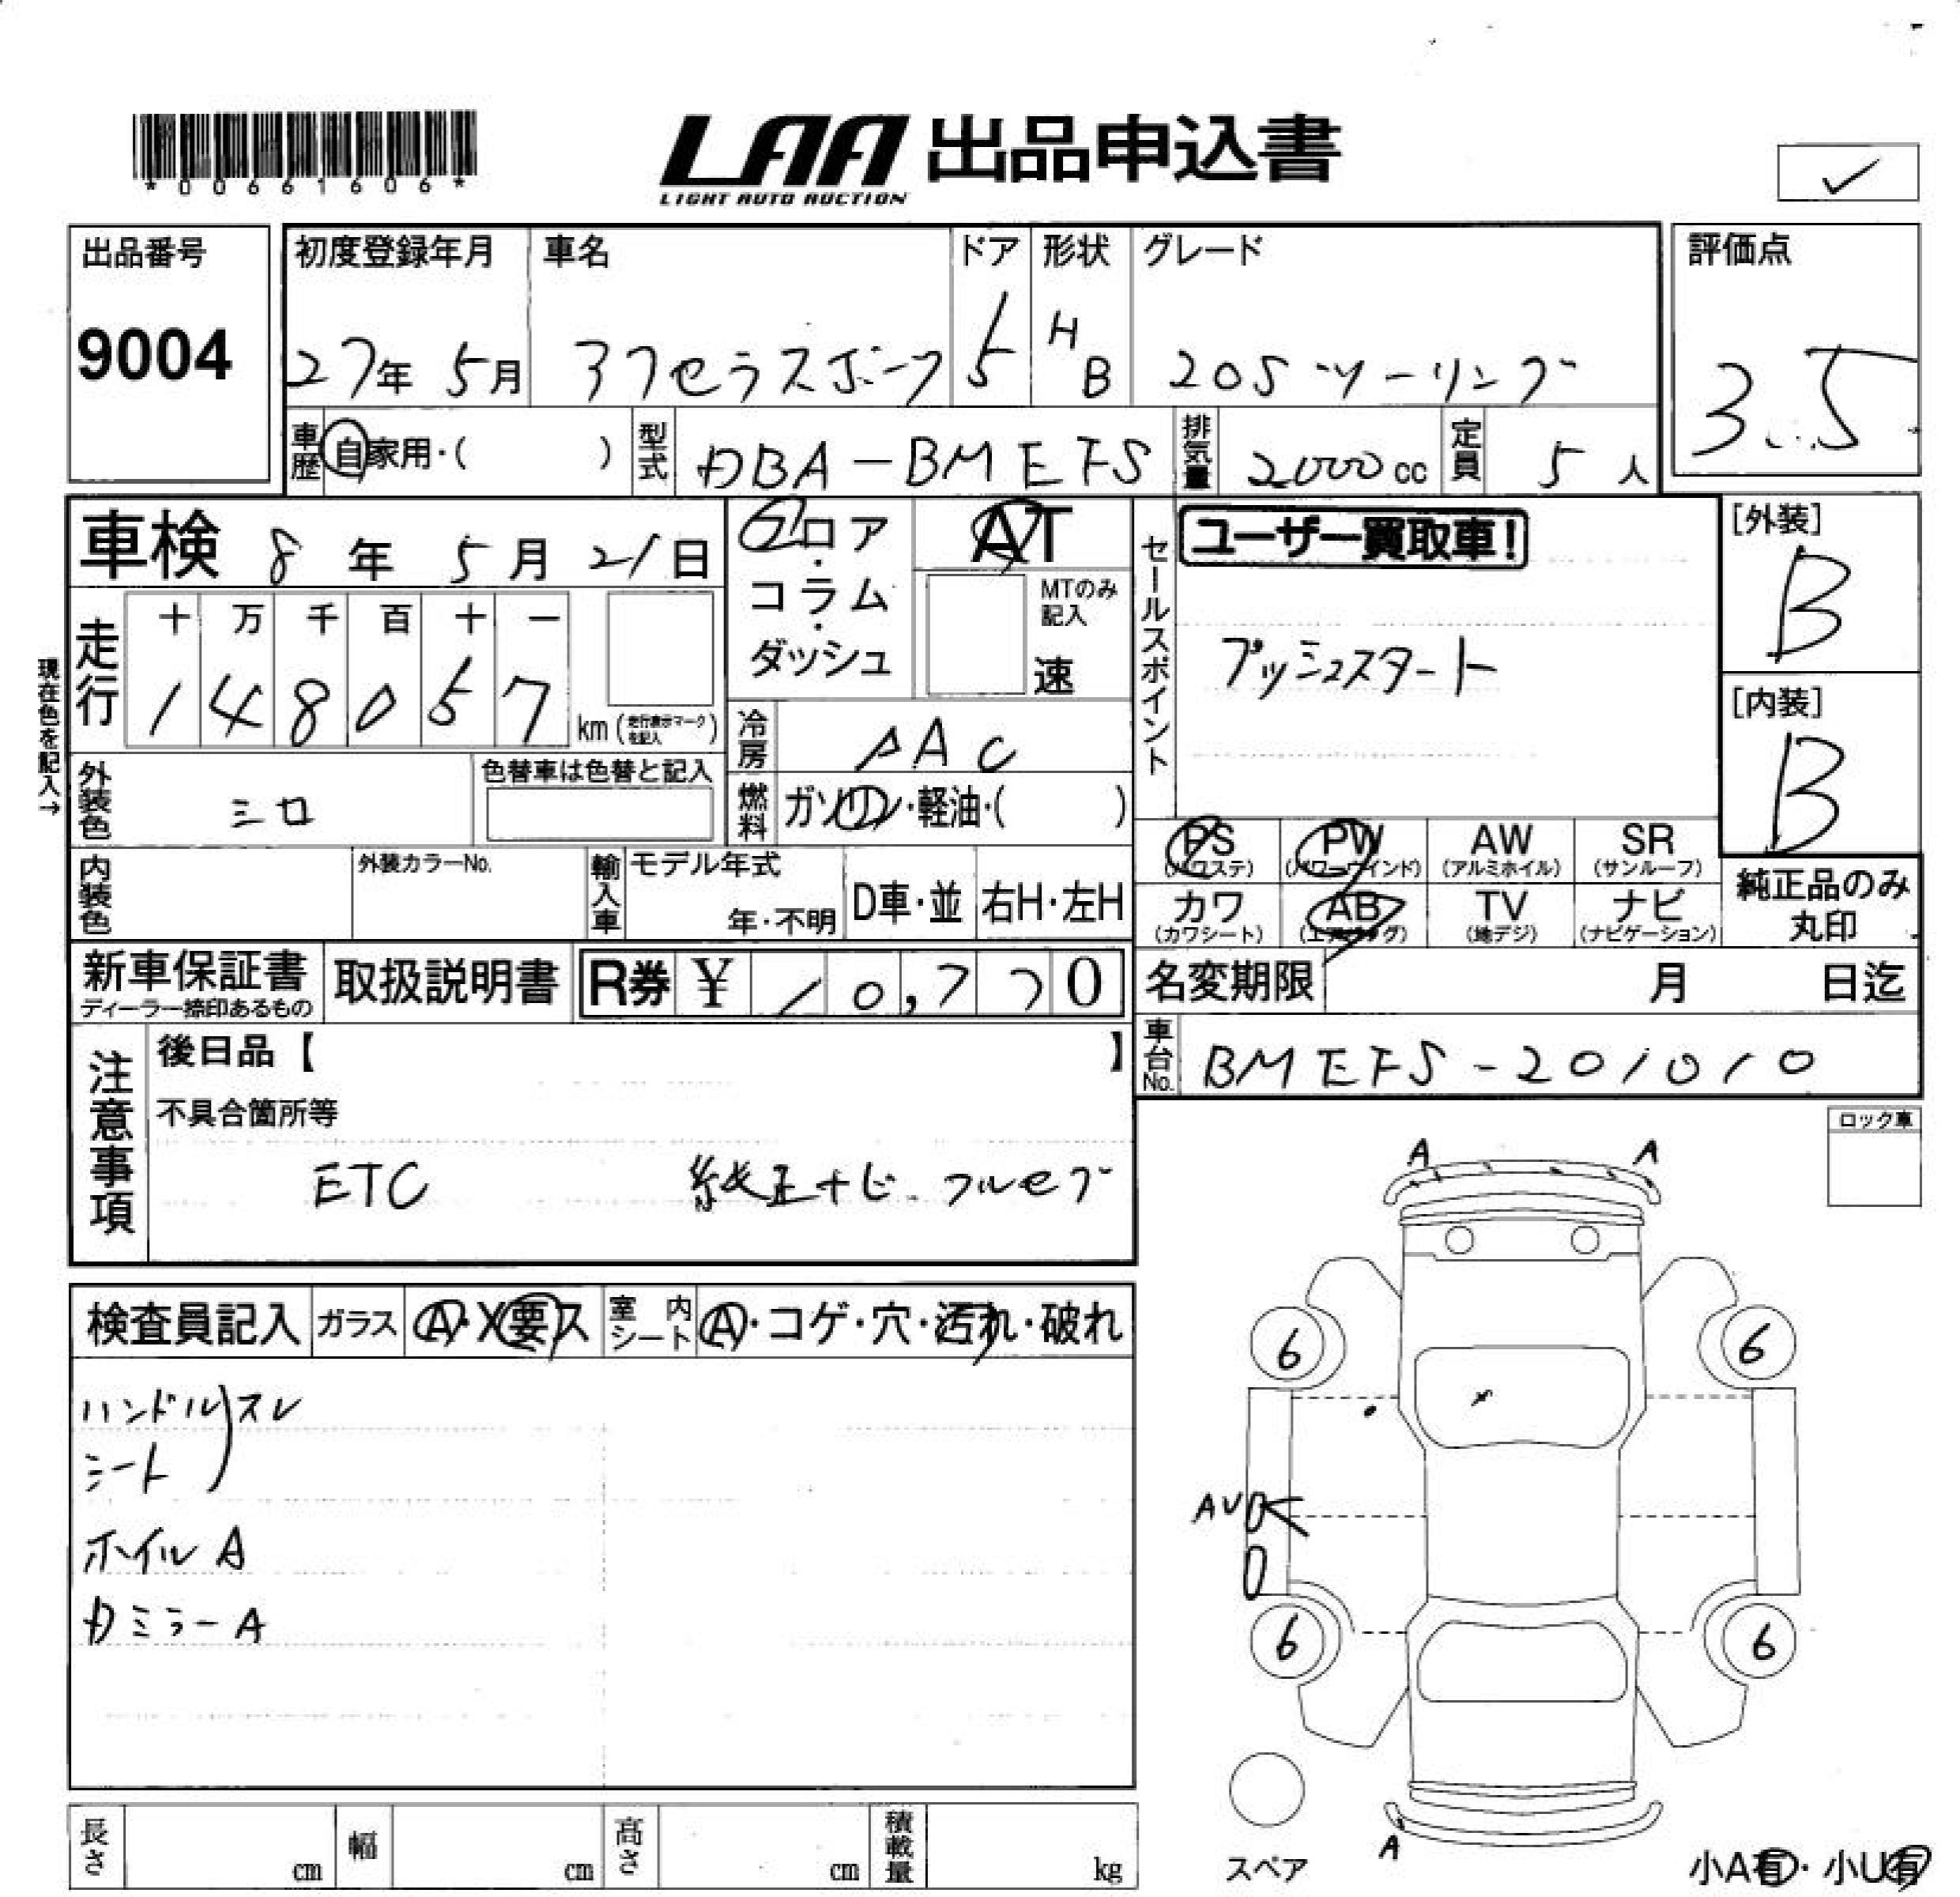 *00661606*
LAA 出品申込書
LIGHT AUTO AUCTION
✓
出品番号
9004
初度登録年月
27年 5月
車名
アクセラスポーツ
ドア
5
形状
HB
グレード
20Sツーリング
評価点
3.5
車歴 自家用・( )
型式 DBA-BMEFS
排気量 2000cc
定員 5人
車検 8年 5月 21日
フロア・コラム・ダッシュ
AT
MTのみ記入
速
セールスポイント
ユーザー買取車!
プッシュスタート
[外装]
B
[内装]
B
現在色を記入→
走行
十 万 千 百 十 一
1 4 8 0 5 7
km (走行表示マークを記入)
冷房 AAC
燃料 ガソリン・軽油・( )
外装色 シロ
色替車は色替と記入
内装色
外装カラーNo.
輸入車
モデル年式
年・不明
D車・並
右H・左H
PS (パワステ)
PW (パワーウインド)
AW (アルミホイル)
SR (サンルーフ)
カワ (カワシート)
AB (エアバッグ)
TV (地デジ)
ナビ (ナビゲーション)
純正品のみ丸印
新車保証書
ディーラー捺印あるもの
取扱説明書
R券 ¥ 10,770
名変期限 月 日迄
車台No. BMEFS-201010
注意事項
後日品【 】
不具合箇所等
ETC 純正ナビ フルセグ
ロック車
検査員記入
ガラス A・X要ス
室内シート A・コゲ・穴・汚れ・破れ
ハンドル)スレ
シート
ホイルA
カミラーA
A A
6 6
AU
6 6
A
スペア
小A有・小U有
長さ cm
幅 cm
高さ cm
積載量 kg